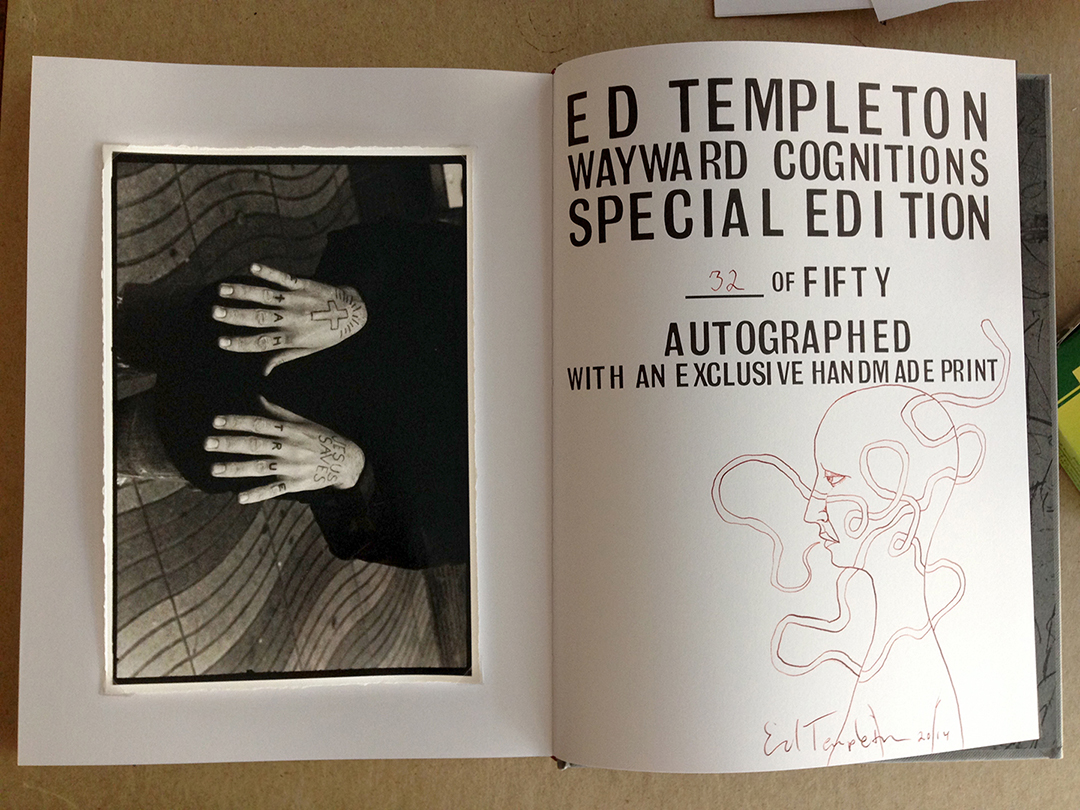 TRUE
JESUS
SAVES
ED TEMPLETON
WAYWARD COGNITIONS
SPECIAL EDITION
32 OF FIFTY
AUTOGRAPHED
WITH AN EXCLUSIVE HANDMADE PRINT
Ed Templeton 2014